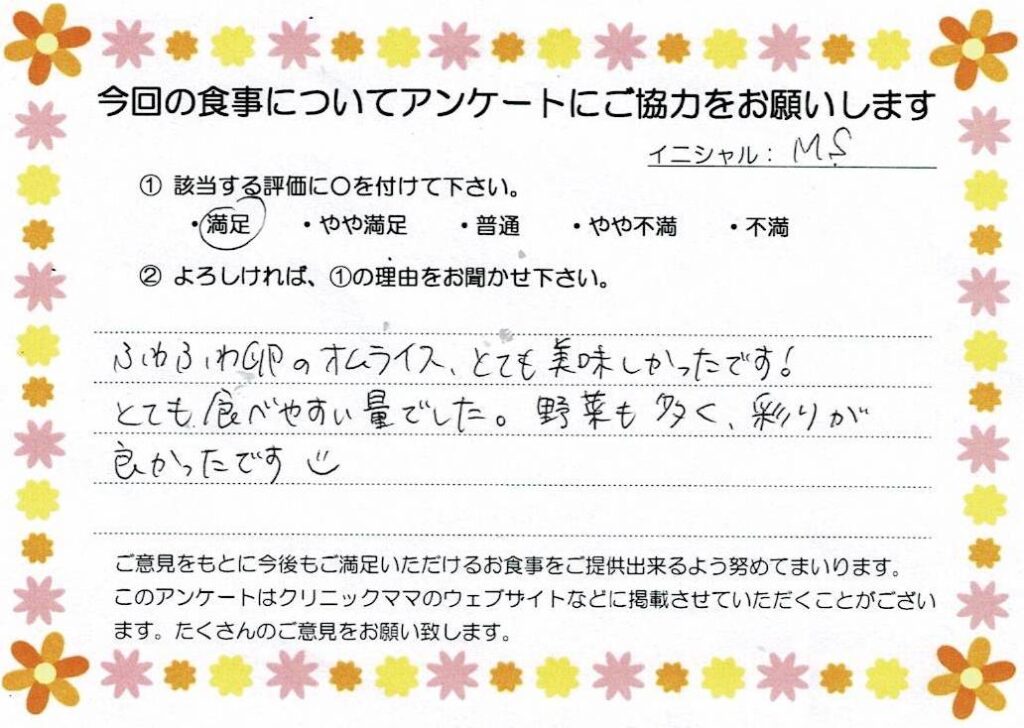 今回の食事についてアンケートにご協力をお願いします
イニシャル： M S
① 該当する評価に○を付けて下さい。
・満足 ・やや満足 ・普通 ・やや不満 ・不満
② よろしければ、①の理由をお聞かせ下さい。
ふわふわ卵のオムライス、とても美味しかったです!
とても食べやすい量でした。野菜も多く、彩りが
良かったです
ご意見をもとに今後もご満足いただけるお食事をご提供出来るよう努めてまいります。
このアンケートはクリニックママのウェブサイトなどに掲載させていただくことがござい
ます。たくさんのご意見をお願い致します。